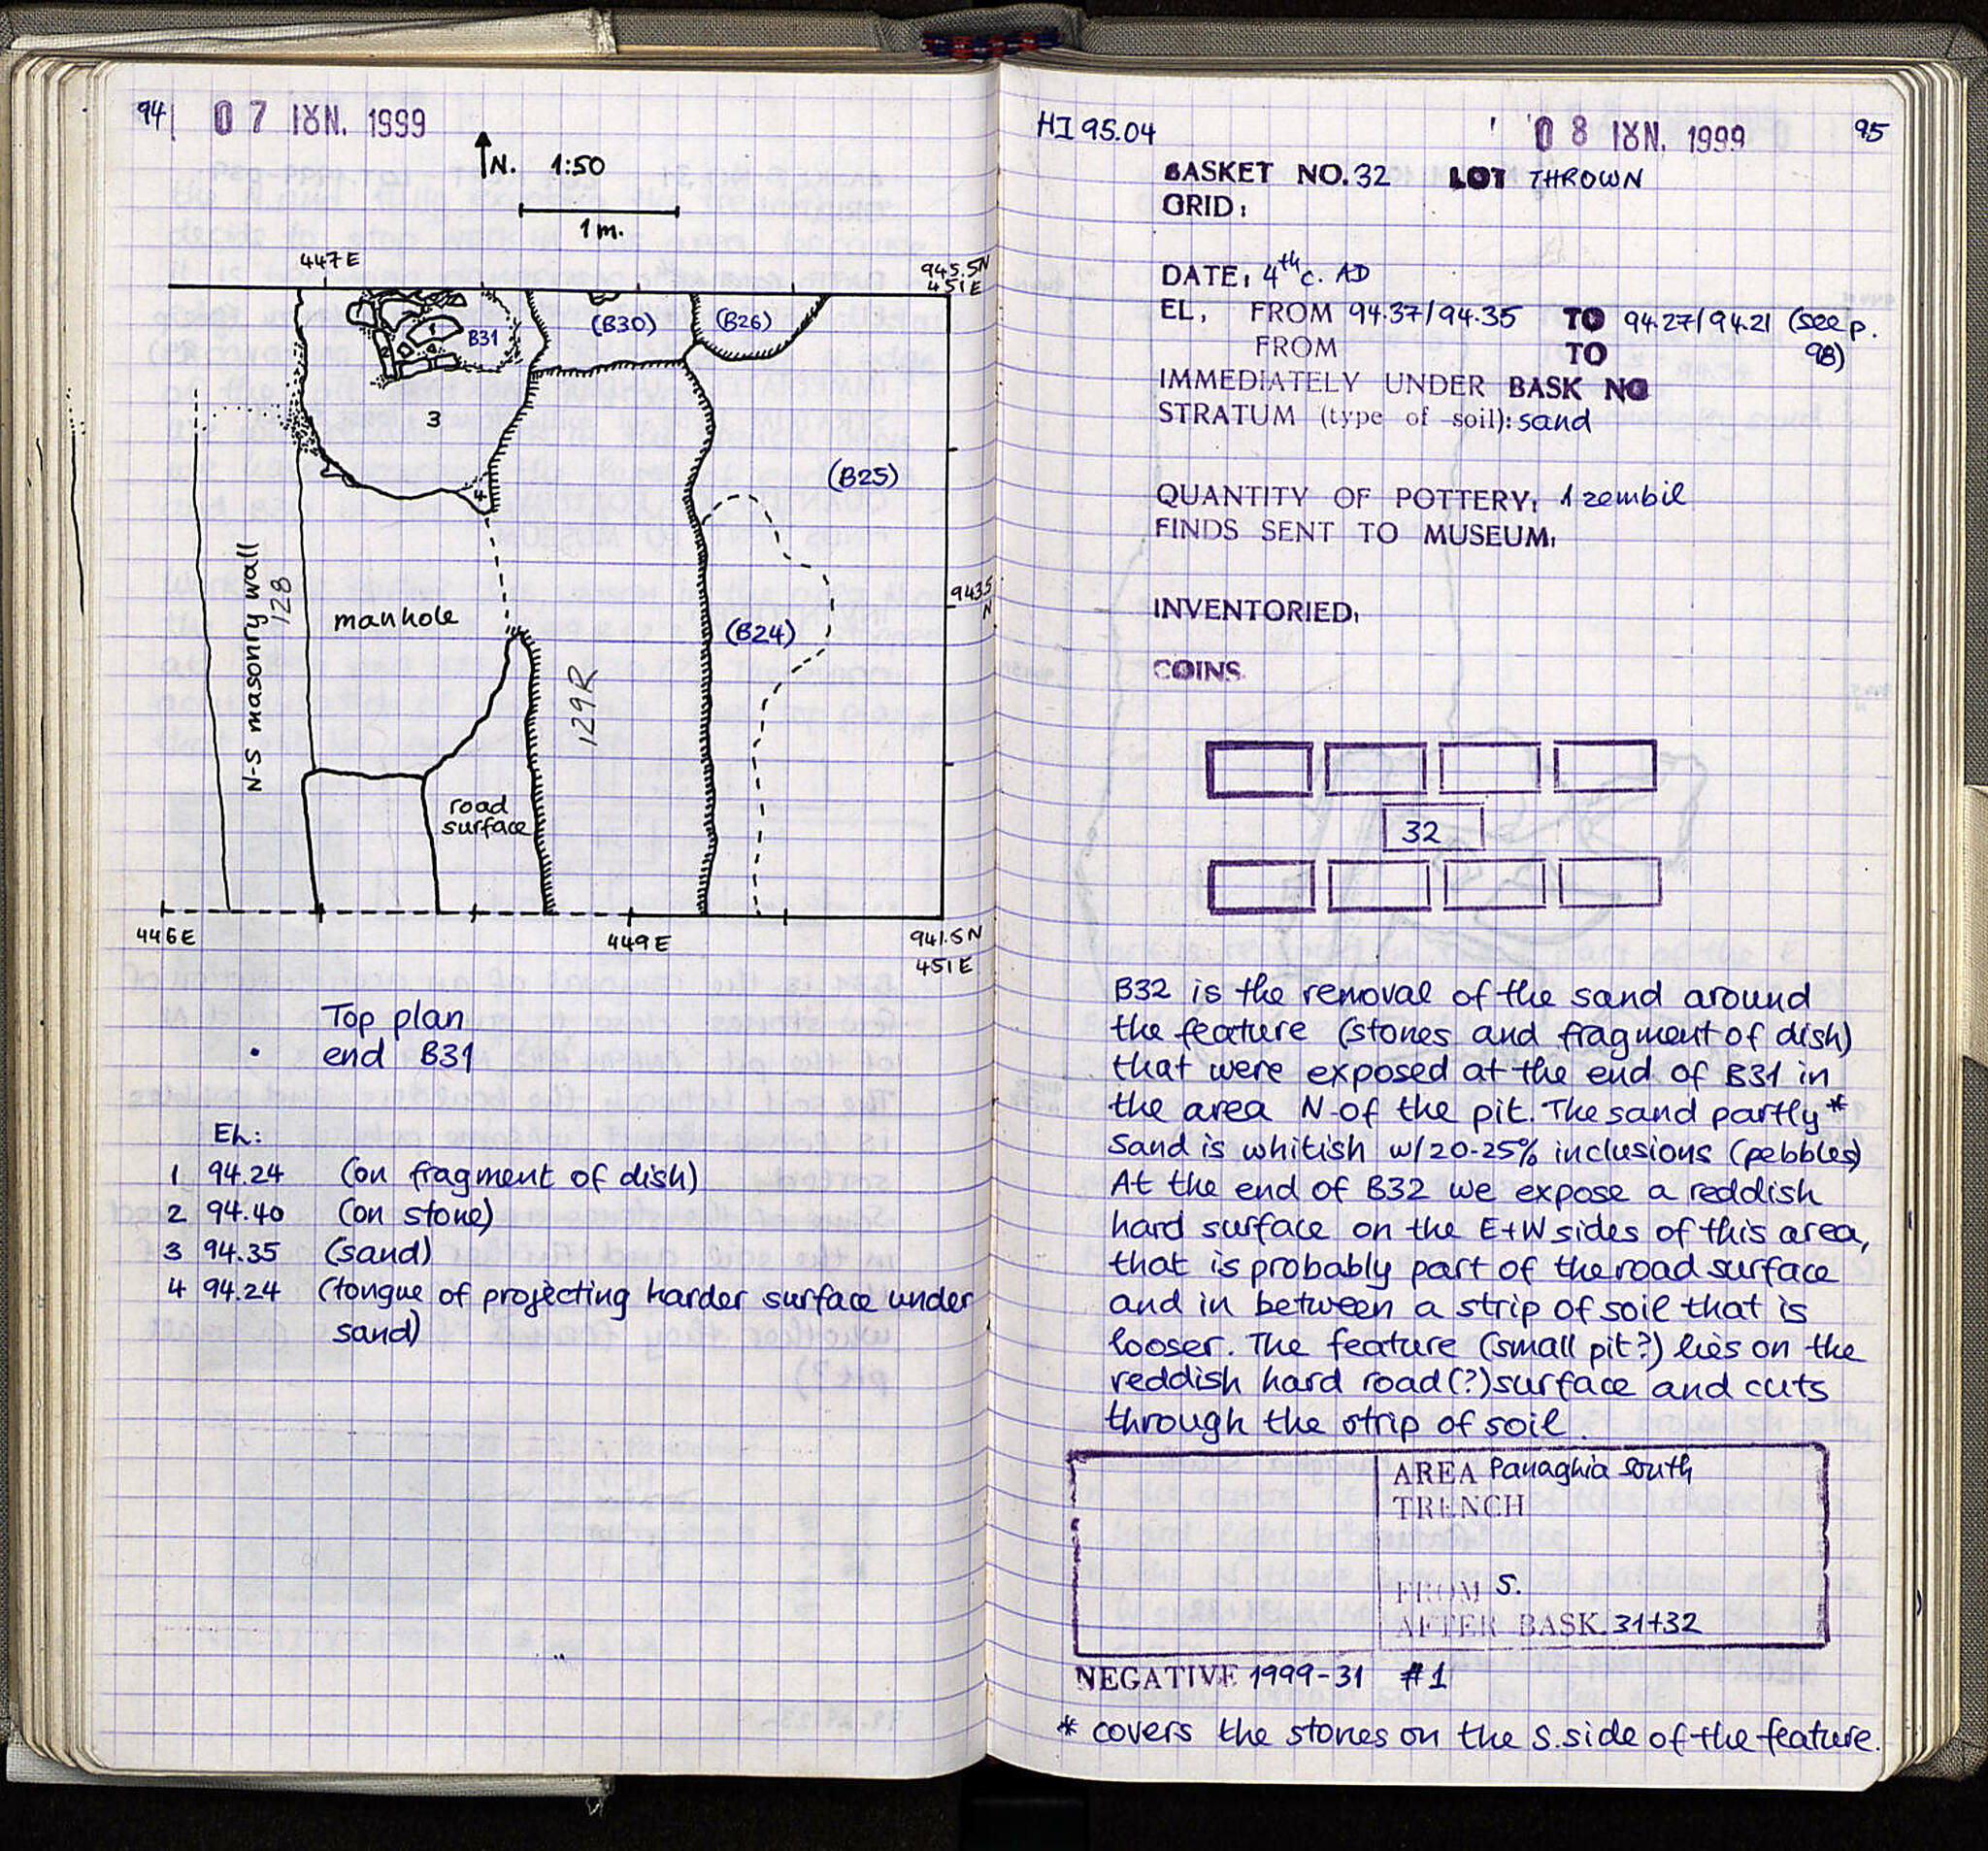 94 07 ΙΟΥΝ. 1999
N. 1:50
1 m.
447 E
945.5N
451E
B31
(B30)
(B26)
1
2
3
4
(B25)
943.5
N
N-S masonry wall
128
manhole
(B24)
129R
road
surface
446E
449E
941.5N
451E
Top plan
end B31
EL:
1 94.24 (on fragment of dish)
2 94.40 (on stone)
3 94.35 (sand)
4 94.24 (tongue of projecting harder surface under
sand)
HI 95.04
08 ΙΟΥΝ. 1999
95
BASKET NO. 32 LOT THROWN
GRID:
DATE: 4th c. AD
EL, FROM 94.37/94.35 TO 94.27/94.21 (see p.
FROM TO 98)
IMMEDIATELY UNDER BASK NO
STRATUM (type of soil): sand
QUANTITY OF POTTERY: 1 zembil
FINDS SENT TO MUSEUM:
INVENTORIED:
COINS
32
B32 is the removal of the sand around
the feature (stones and fragment of dish)
that were exposed at the end of B31 in
the area N. of the pit. The sand partly*
Sand is whitish w/20-25% inclusions (pebbles)
At the end of B32 we expose a reddish
hard surface on the E+W sides of this area,
that is probably part of the road surface
and in between a strip of soil that is
looser. The feature (small pit?) lies on the
reddish hard road(?) surface and cuts
through the strip of soil.
AREA Panaghia South
TRENCH
FROM S.
AFTER BASK. 31+32
NEGATIVE 1999-31 #1
* covers the stones on the S. side of the feature.